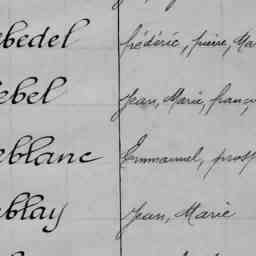 ebedel frédéric, pierre, Ma
ebel Jean, Marie, franç
eblanc Emmanuel, prosp
eblay Jean, Marie